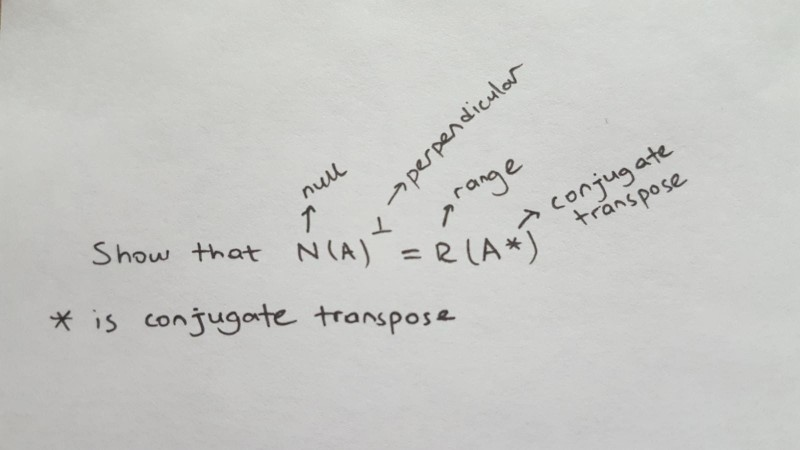 null
perpendicular
range
conjugate
transpose
Show that N(A)^⊥ = R(A*)
* is conjugate transpose